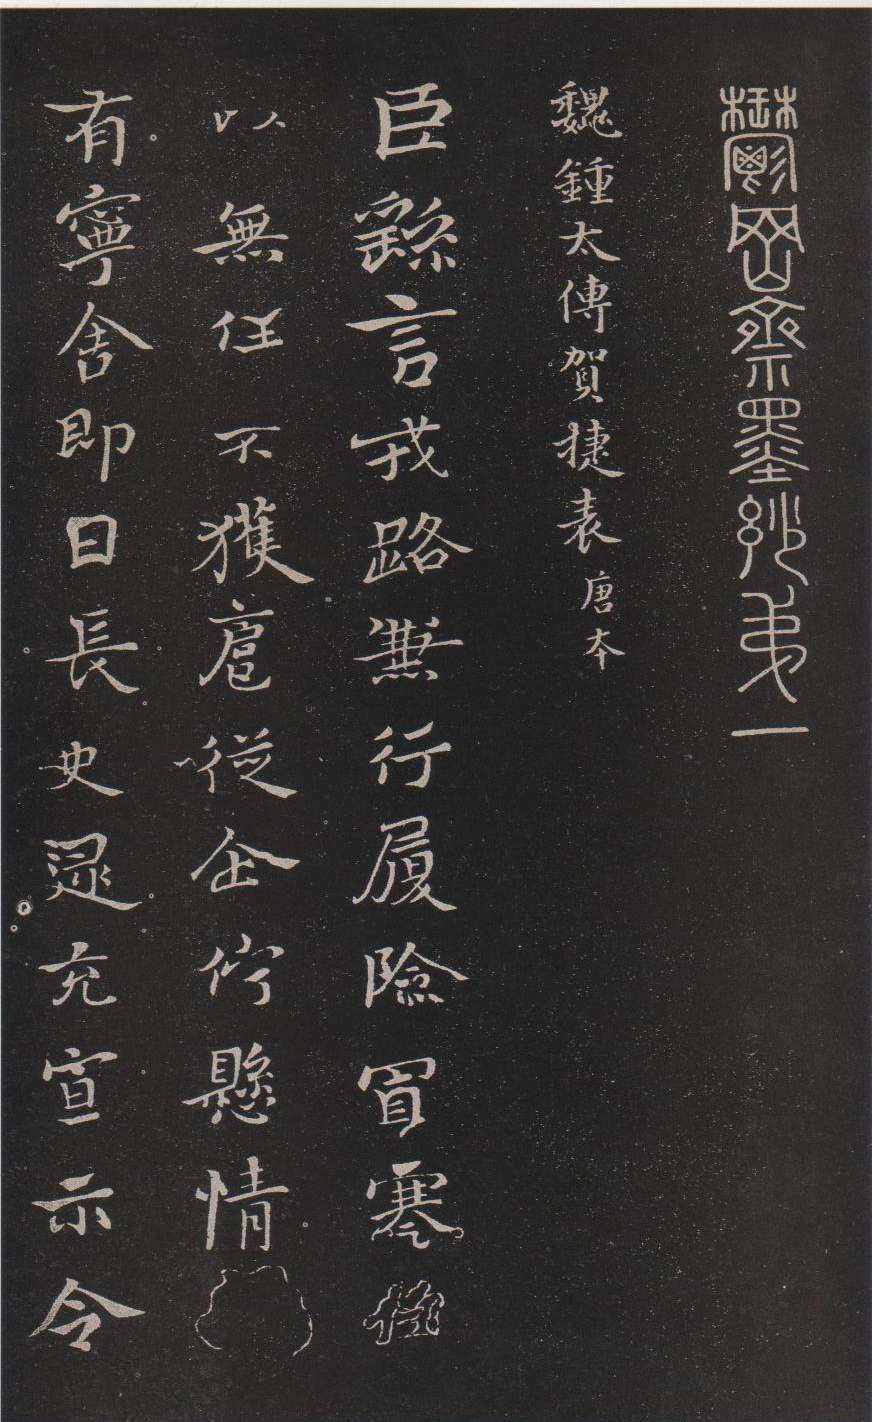 鬱岡齋墨妙弟一
魏鍾太傅賀捷表 唐本
臣繇言戎路兼行履險冒寒
以無任不獲扈從企佇懸情
有寧舍即日長史逯充宣示令